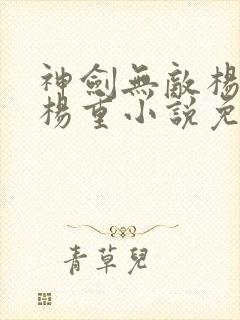 神劍無敵楊
楊重小說免
青草兒